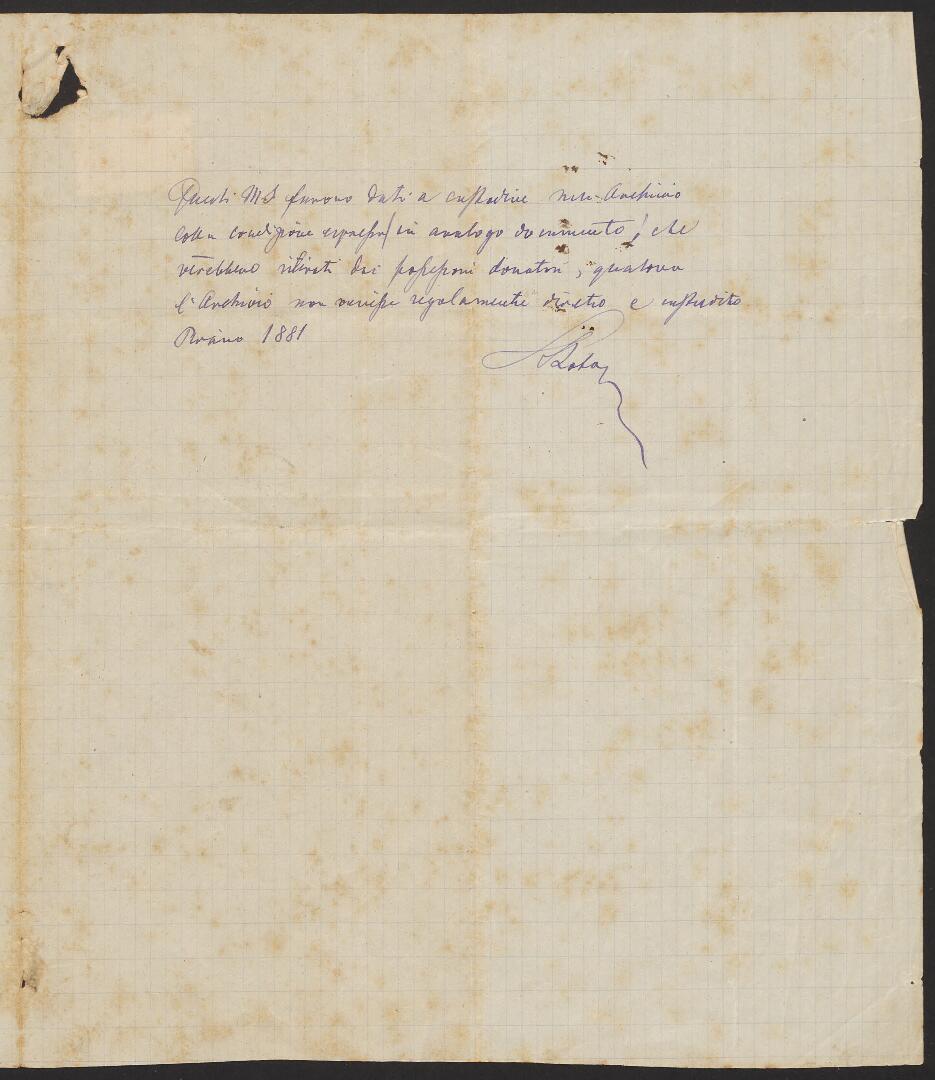 Questi MS furono dati a custodire nell'Archivio
colla condizione espressa in analogo documento, che
verebbero ritirati dai possessori donatori, qualora
l'Archivio non venisse regolamente diretto e custodito
Pirano 1881
Rota